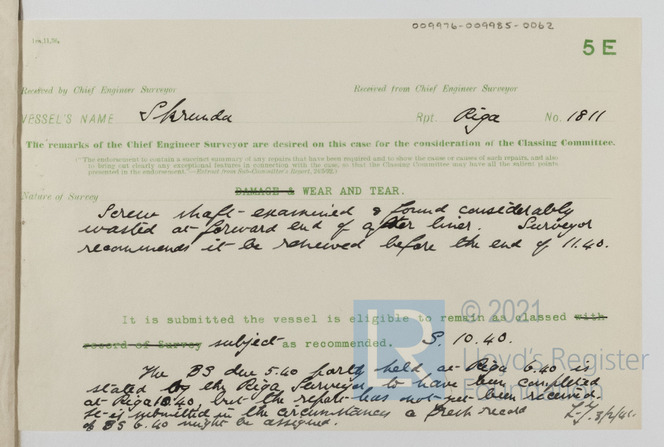 009976-009985-0062
5 E
Received by Chief Engineer Surveyor Received from Chief Engineer Surveyor
VESSEL'S NAME Skrunda Rpt. Riga No. 1811
The remarks of the Chief Engineer Surveyor are desired on this case for the consideration of the Classing Committee.
("The endorsement to contain a succinct summary of any repairs that have been required and to show the cause or causes of such repairs, and also
to bring out clearly any exceptional features in connection with the case, so that the Classing Committee may have all the salient points
presented in the endorsement."—Extract from Sub-Committee's Report,
Nature of Survey
DAMAGE & WEAR AND TEAR.
Screw shaft examined & found considerably
wasted at forward end of after liner. Surveyor
recommends it be renewed before the end of 11.40.
It is submitted the vessel is eligible to remain as classed with
record of Survey subject as recommended. S. 10.40.
The BS due 5.40 partly held at Riga 6.40 is
stated by the Riga Surveyor to have been completed
at Riga 10.40, but the report has not yet been received.
It is submitted in the circumstances a fresh record
of BS 6.40 might be assigned.
© 2021
LR
Lloyd's Register
Foundation